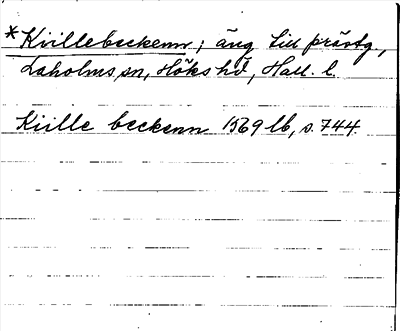 *Kvillebeckenn; äng till prästg,
Laholms sn, Höks hd, Hall. l.
Kville beckenn 1569 lb, s. 744.